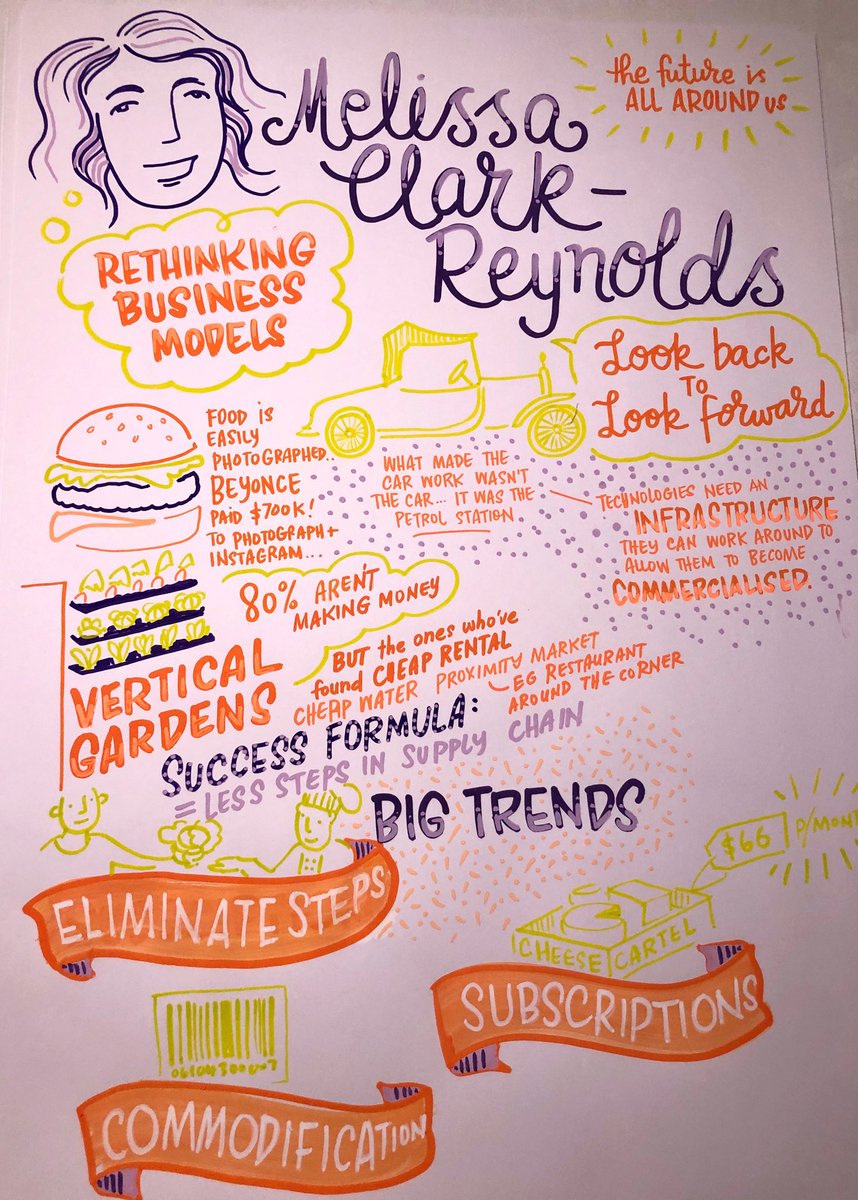 Melissa
Clark-
Reynolds
the future is
ALL AROUND US
RETHINKING
BUSINESS
MODELS
Look back
TO
Look forward
FOOD IS
EASILY
PHOTOGRAPHED..
BEYONCE
PAID $700K!
TO PHOTOGRAPH +
INSTAGRAM...
WHAT MADE THE
CAR WORK WASN'T
THE CAR... IT WAS THE
PETROL STATION
TECHNOLOGIES NEED AN
INFRASTRUCTURE
THEY CAN WORK AROUND TO
ALLOW THEM TO BECOME
COMMERCIALISED.
80% AREN'T
MAKING MONEY
VERTICAL
GARDENS
BUT the ones who've
found CHEAP RENTAL
CHEAP WATER PROXIMITY MARKET
EG RESTAURANT
AROUND THE CORNER
SUCCESS FORMULA:
= LESS STEPS IN SUPPLY CHAIN
BIG TRENDS
ELIMINATE STEPS
$66 P/MONT
CHEESE CARTEL
SUBSCRIPTIONS
COMMODIFICATION